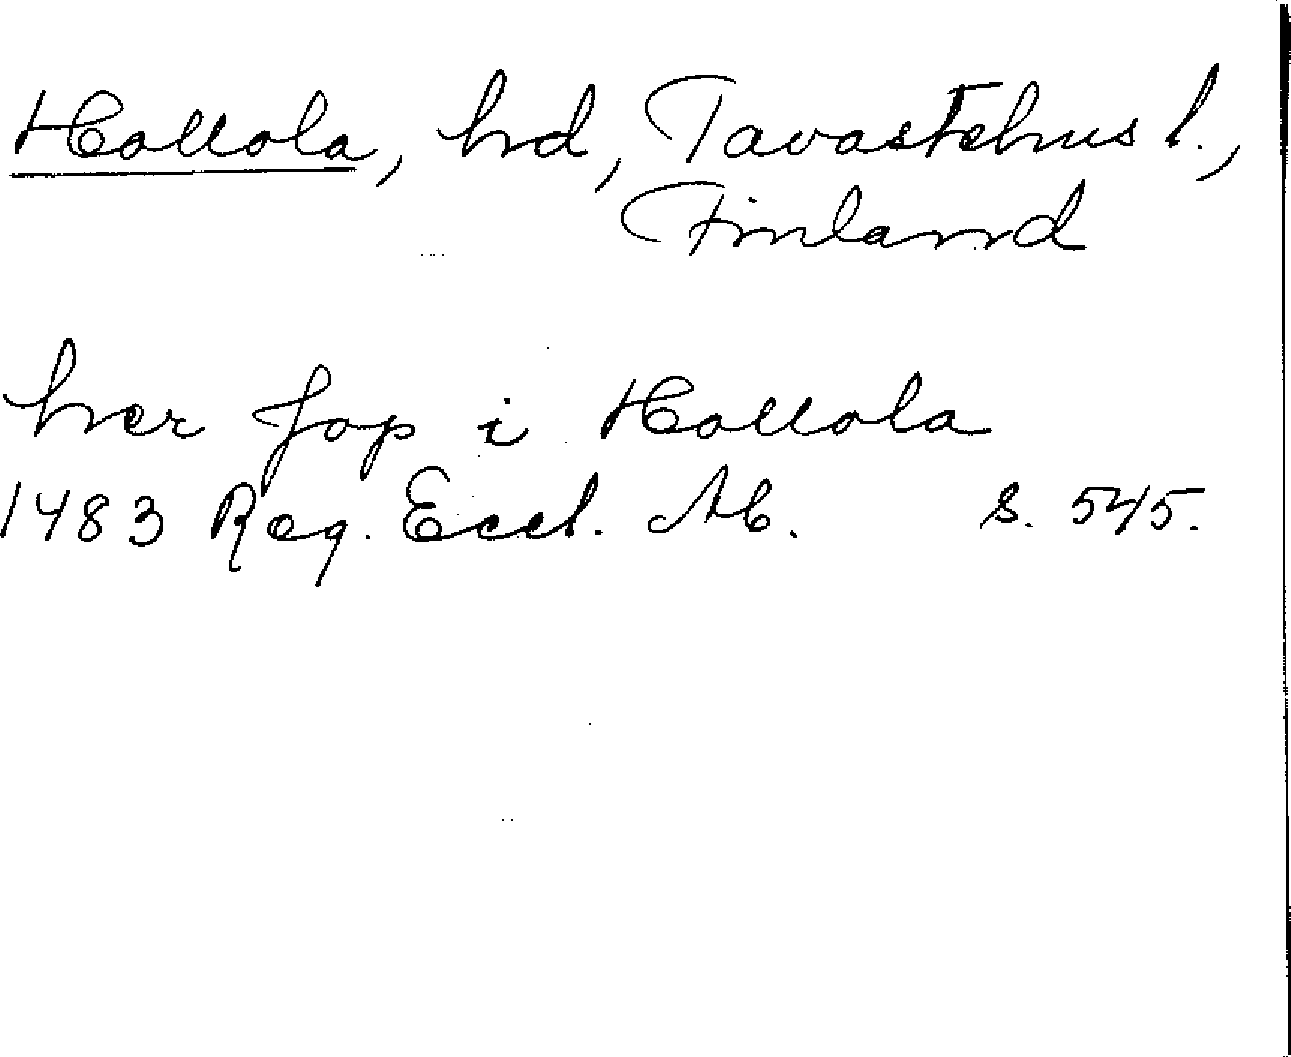 Hollola, hd, Tavastehus l.,
Finland
her Jop i Hollola
1483 Reg. Eccl. Ab. s. 545.